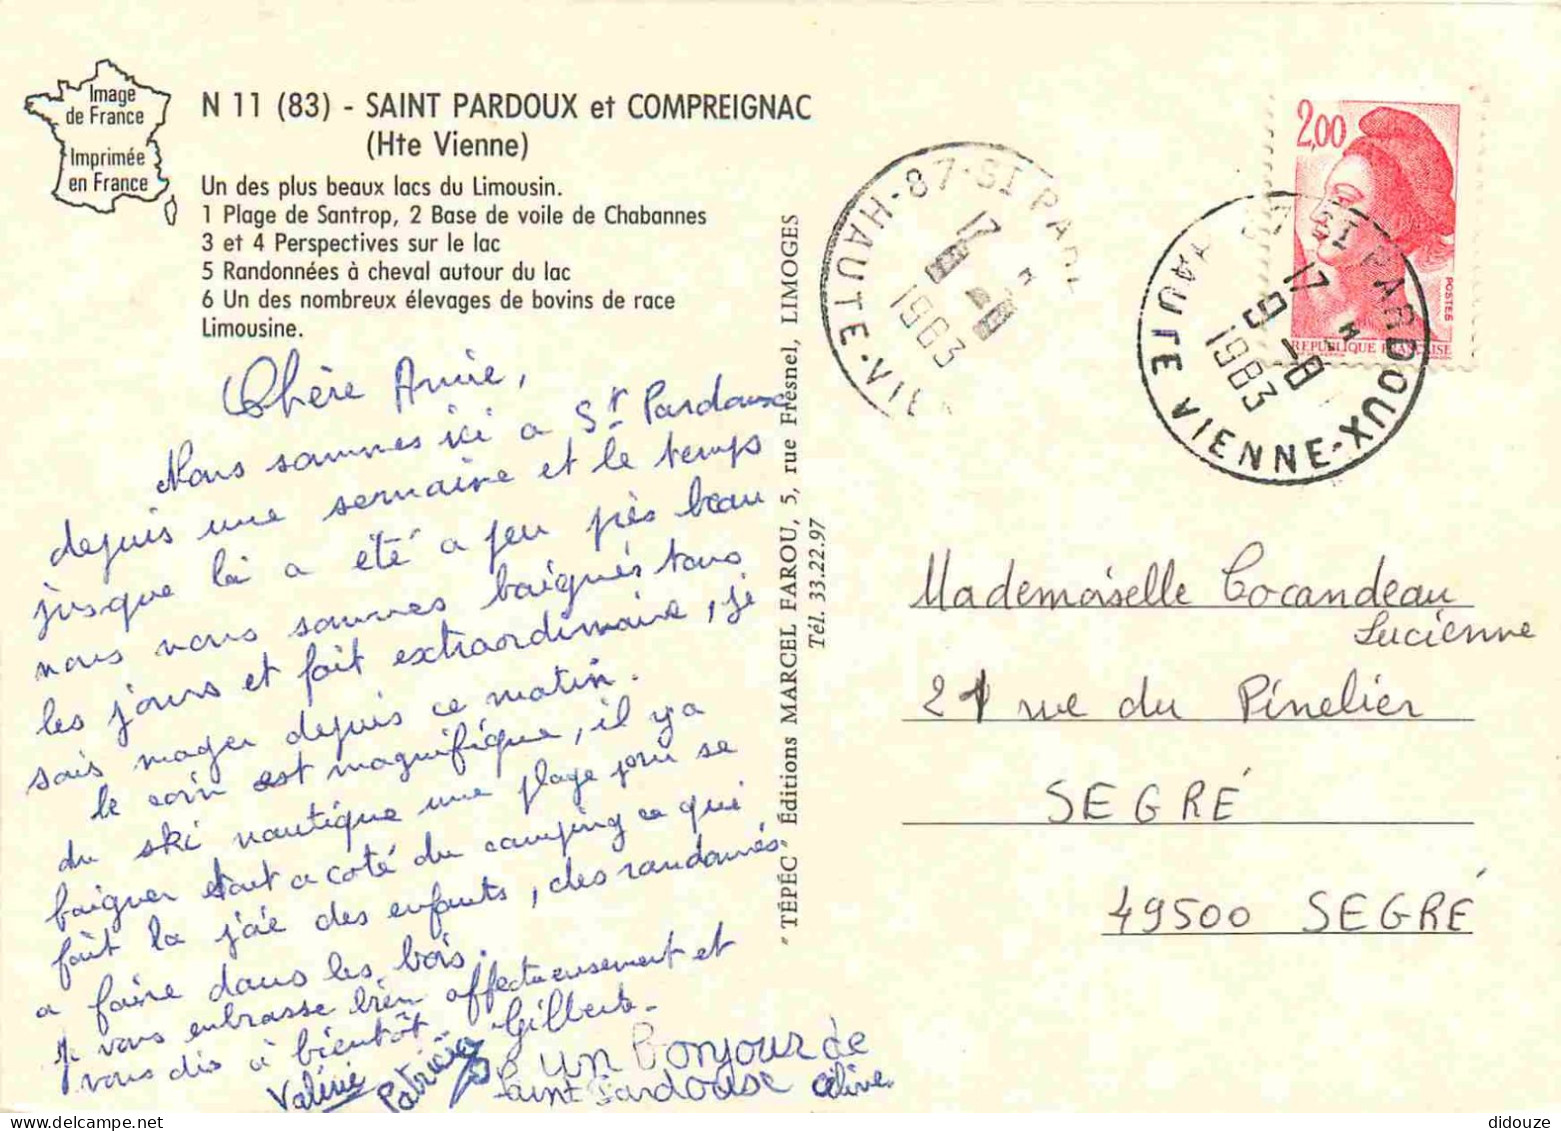 Image
de France
Imprimée
en France
N 11 (83) - SAINT PARDOUX et COMPREIGNAC
(Hte Vienne)
Un des plus beaux lacs du Limousin.
1 Plage de Santrop, 2 Base de voile de Chabannes
3 et 4 Perspectives sur le lac
5 Randonnées à cheval autour du lac
6 Un des nombreux élevages de bovins de race
Limousine.
Chère Annie,
Nous sommes ici a St Pardoux
depuis une semaine et le temps
jusque là a été a peu près beau
nous nous sommes baignés tous
les jours et fait extraordinaire, je
sais nager depuis ce matin.
le coin est magnifique, il y a
du ski nautique une plage pour se
baigner tout a coté du camping ce qui
fait la joie des enfants, des randonnés
a faire dans les bois.
Je vous embrasse bien affectueusement et
vous dis à bientôt Gilberte -
Valérie Patricia
un Bonjour de
Saint Pardouse
"TÉPÉC" Éditions MARCEL FAROU, 5, rue Fresnel, LIMOGES
Tél. 33.22.97
87-ST PARD
HAUTE-VI
17
1983
2,00
POSTES
REPUBLIQUE FRANÇAISE
87 ST PARDOUX
HAUTE VIENNE
17 H
9 -8
1983
Mademoiselle Cocandeau
Lucienne
21 rue du Pinelier
SEGRÉ
49500 SEGRÉ
didouze